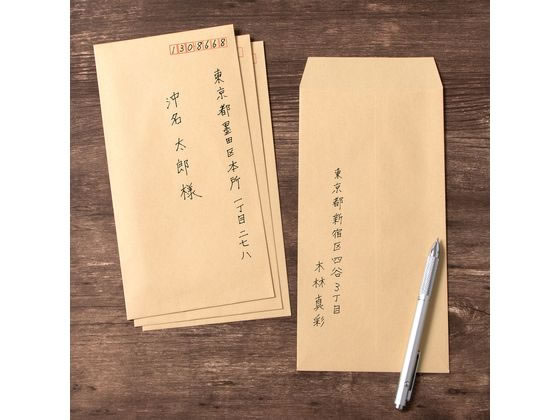 1308668
東京都墨田区本所一丁目二七八
沖名太郎様
東京都新宿区四谷3丁目
木林真彩